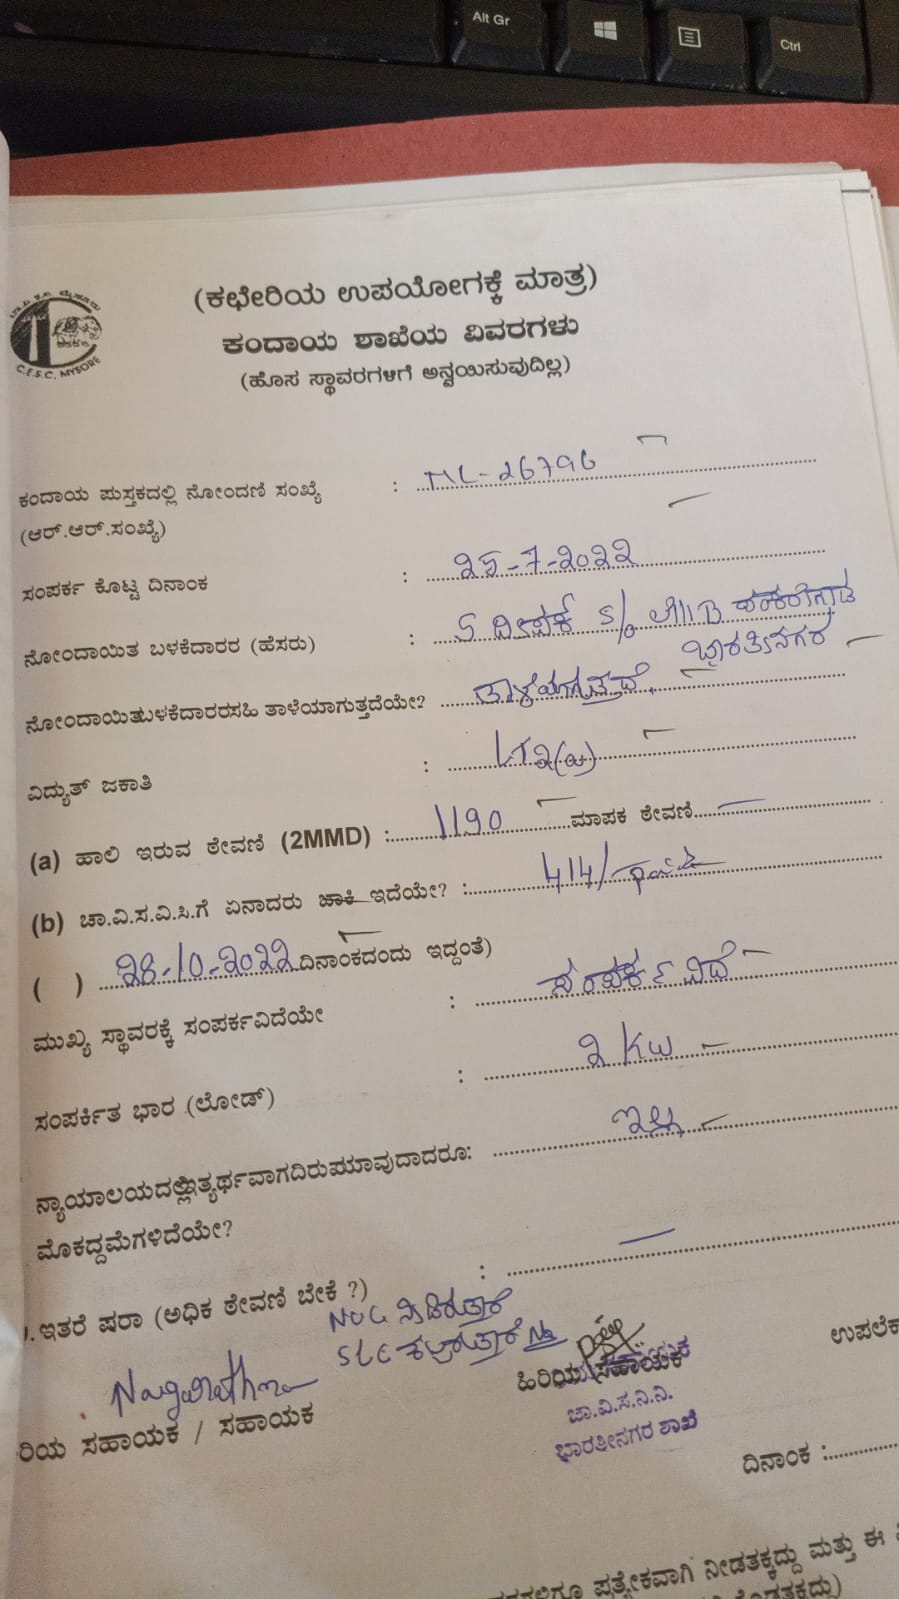 Alt Gr
Ctrl
C.E.S.C. MYSORE
(ಕಛೇರಿಯ ಉಪಯೋಗಕ್ಕೆ ಮಾತ್ರ)
ಕಂದಾಯ ಶಾಖೆಯ ವಿವರಗಳು
(ಹೊಸ ಸ್ಥಾವರಗಳಿಗೆ ಅನ್ವಯಿಸುವುದಿಲ್ಲ)
ಕಂದಾಯ ಪುಸ್ತಕದಲ್ಲಿ ನೋಂದಣಿ ಸಂಖ್ಯೆ : ML-26796
(ಆರ್.ಆರ್.ಸಂಖ್ಯೆ)
ಸಂಪರ್ಕ ಕೊಟ್ಟ ದಿನಾಂಕ : 25-7-2022
ನೋಂದಾಯಿತ ಬಳಕೆದಾರರ (ಹೆಸರು) : S ದೀಪಕ್ S/o B
ಭಾರತೀನಗರ
ನೋಂದಾಯಿತಬಳಕೆದಾರರಸಹಿ ತಾಳೆಯಾಗುತ್ತದೆಯೇ? ತಾಳೆಯಾಗುತ್ತದೆ.
ವಿದ್ಯುತ್ ಜಕಾತಿ : LT2(a)
(a) ಹಾಲಿ ಇರುವ ಠೇವಣಿ (2MMD) : 1190 ಮಾಪಕ ಠೇವಣಿ
(b) ಚಾ.ವಿ.ಸ.ವಿ.ಸಿ.ಗೆ ಏನಾದರು ಬಾಕಿ ಇದೆಯೇ? : 414/ paid
( ) 28-10-2022 ದಿನಾಂಕದಂದು ಇದ್ದಂತೆ)
ಮುಖ್ಯ ಸ್ಥಾವರಕ್ಕೆ ಸಂಪರ್ಕವಿದೆಯೇ : ಸಂಪರ್ಕವಿದೆ
ಸಂಪರ್ಕಿತ ಭಾರ (ಲೋಡ್) : 2 KW
ನ್ಯಾಯಾಲಯದಲ್ಲಿ ಇತ್ಯರ್ಥವಾಗದಿರುವ ಯಾವುದಾದರೂ : ಇಲ್ಲ
ಮೊಕದ್ದಮೆಗಳಿದೆಯೇ?
. ಇತರೆ ಷರಾ (ಅಧಿಕ ಠೇವಣಿ ಬೇಕೆ ?) :
NOC ನೀಡಿರುತ್ತಾರೆ
SLC
Nagarathna
ರಿಯ ಸಹಾಯಕ / ಸಹಾಯಕ
ಹಿರಿಯ ಸಹಾಯಕ
ಚಾ.ವಿ.ಸ.ನಿ.ನಿ.
ಭಾರತೀನಗರ ಶಾಖೆ
ಉಪಲೆಕ
ದಿನಾಂಕ :
ಪ್ರತ್ಯೇಕವಾಗಿ ನೀಡತಕ್ಕದ್ದು ಮತ್ತು ಈ